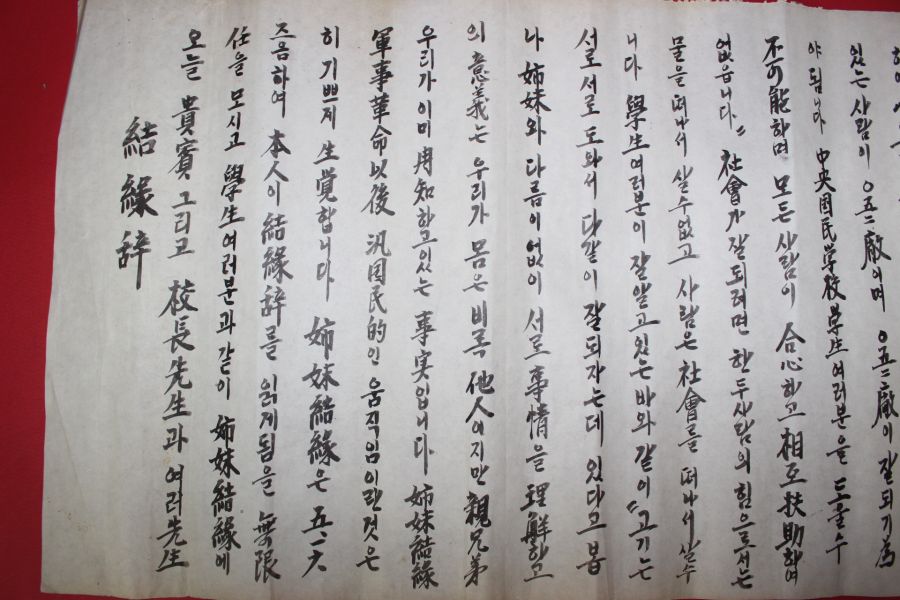 結緣辞
오늘 貴賓 그리고 校長先生과 여러先生
任을 모시고 學生여러분과 같이 姉妹結緣에
즈음하여 本人이 結緣辞를 읽게됨을 無限
히 기쁘게 生覚합니다 姉妹結緣은 五.一六
軍事革命以後 汎国民的인 움직임이란것은
우리가 이미 周知하고있는 事実입니다 姉妹結緣
의 意義는 우리가 몸은 비록 他人이지만 親兄弟
나 姉妹와 다름이 없이 서로 事情을 理解하고
서로서로 도와서 다같이 잘되자는데 있다고 봅
니다 學生여러분이 잘알고 있는 바와 같이 "고기는
물을 떠나서 살수없고 사람은 社會를 떠나서 살수
없읍니다" 社會가 잘되려면 한두사람의 힘으로서는
不可能하며 모든사람이 合心하고 相互扶助하여
야 됩니다 中央国民学校学生여러분을 도울수
있는 사람이 O五二廠이며 O五二廠이 잘되기 爲